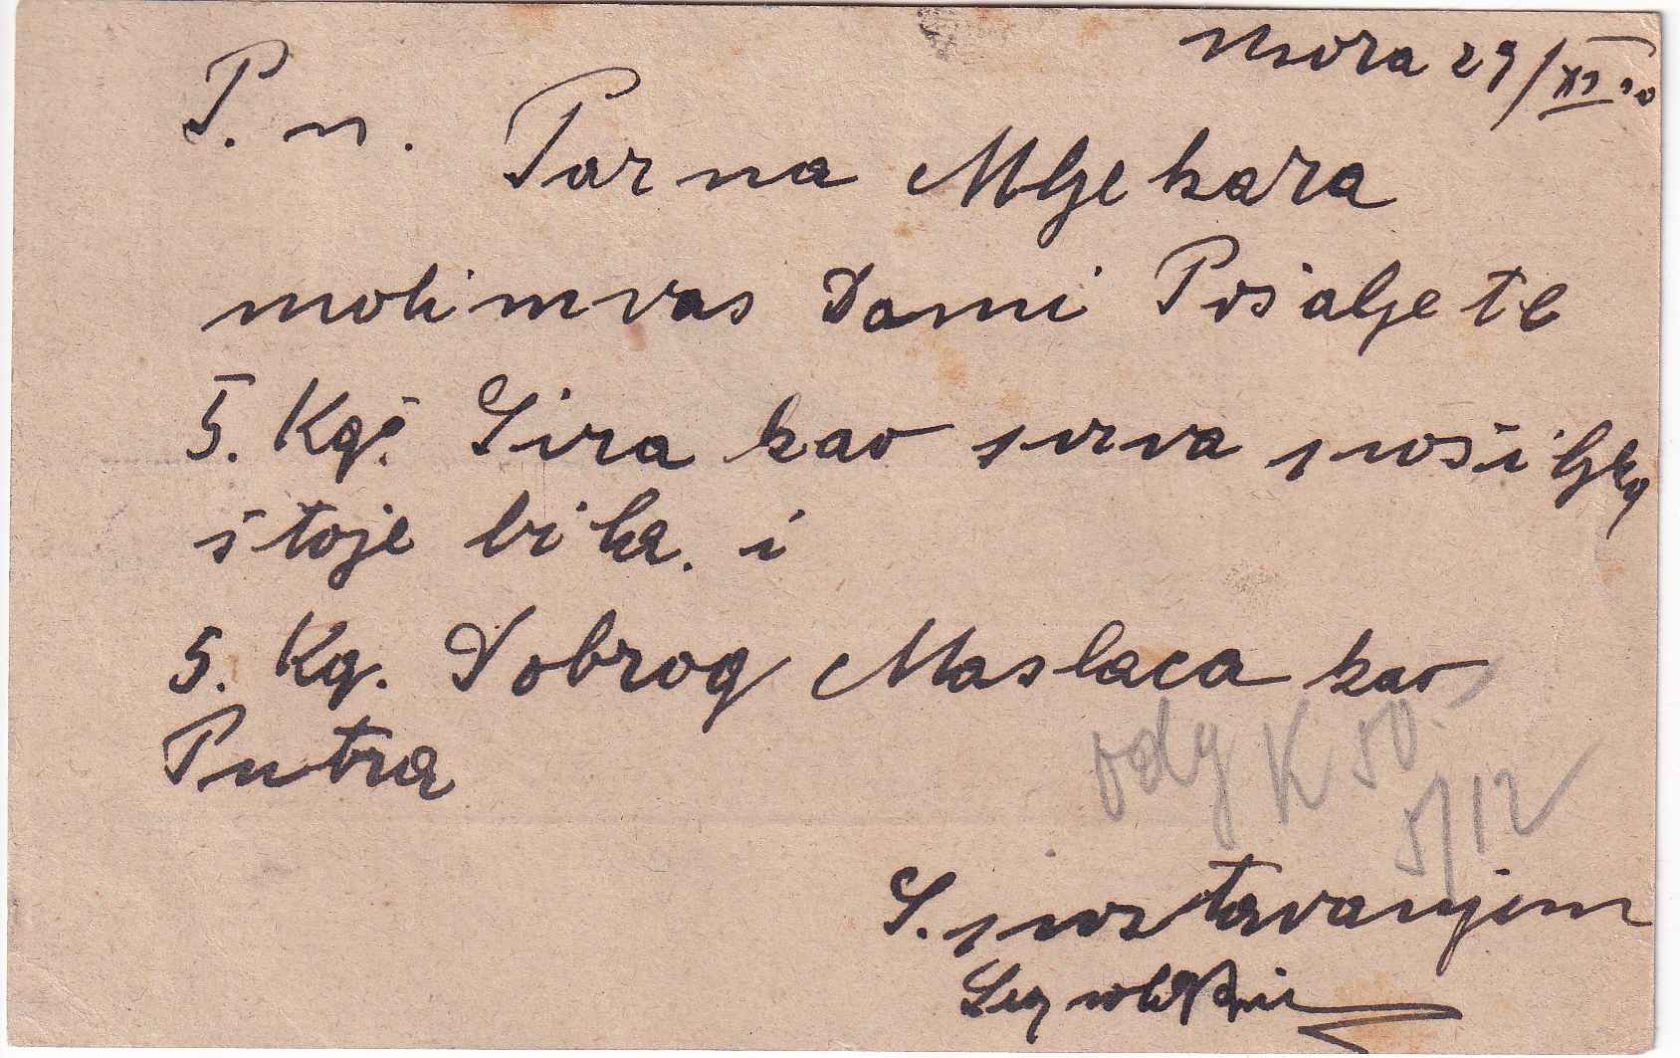 Mora 29/XI 20
P. n. Parna Mljekara
molimvas Dami Pošaljete
5. Kgš Sira kao prva pošiljka
štoje bila. i
5. Kg. Dobrog Maslaca kao
Putra
odg K 50.-
5/12
S. poštovanjem